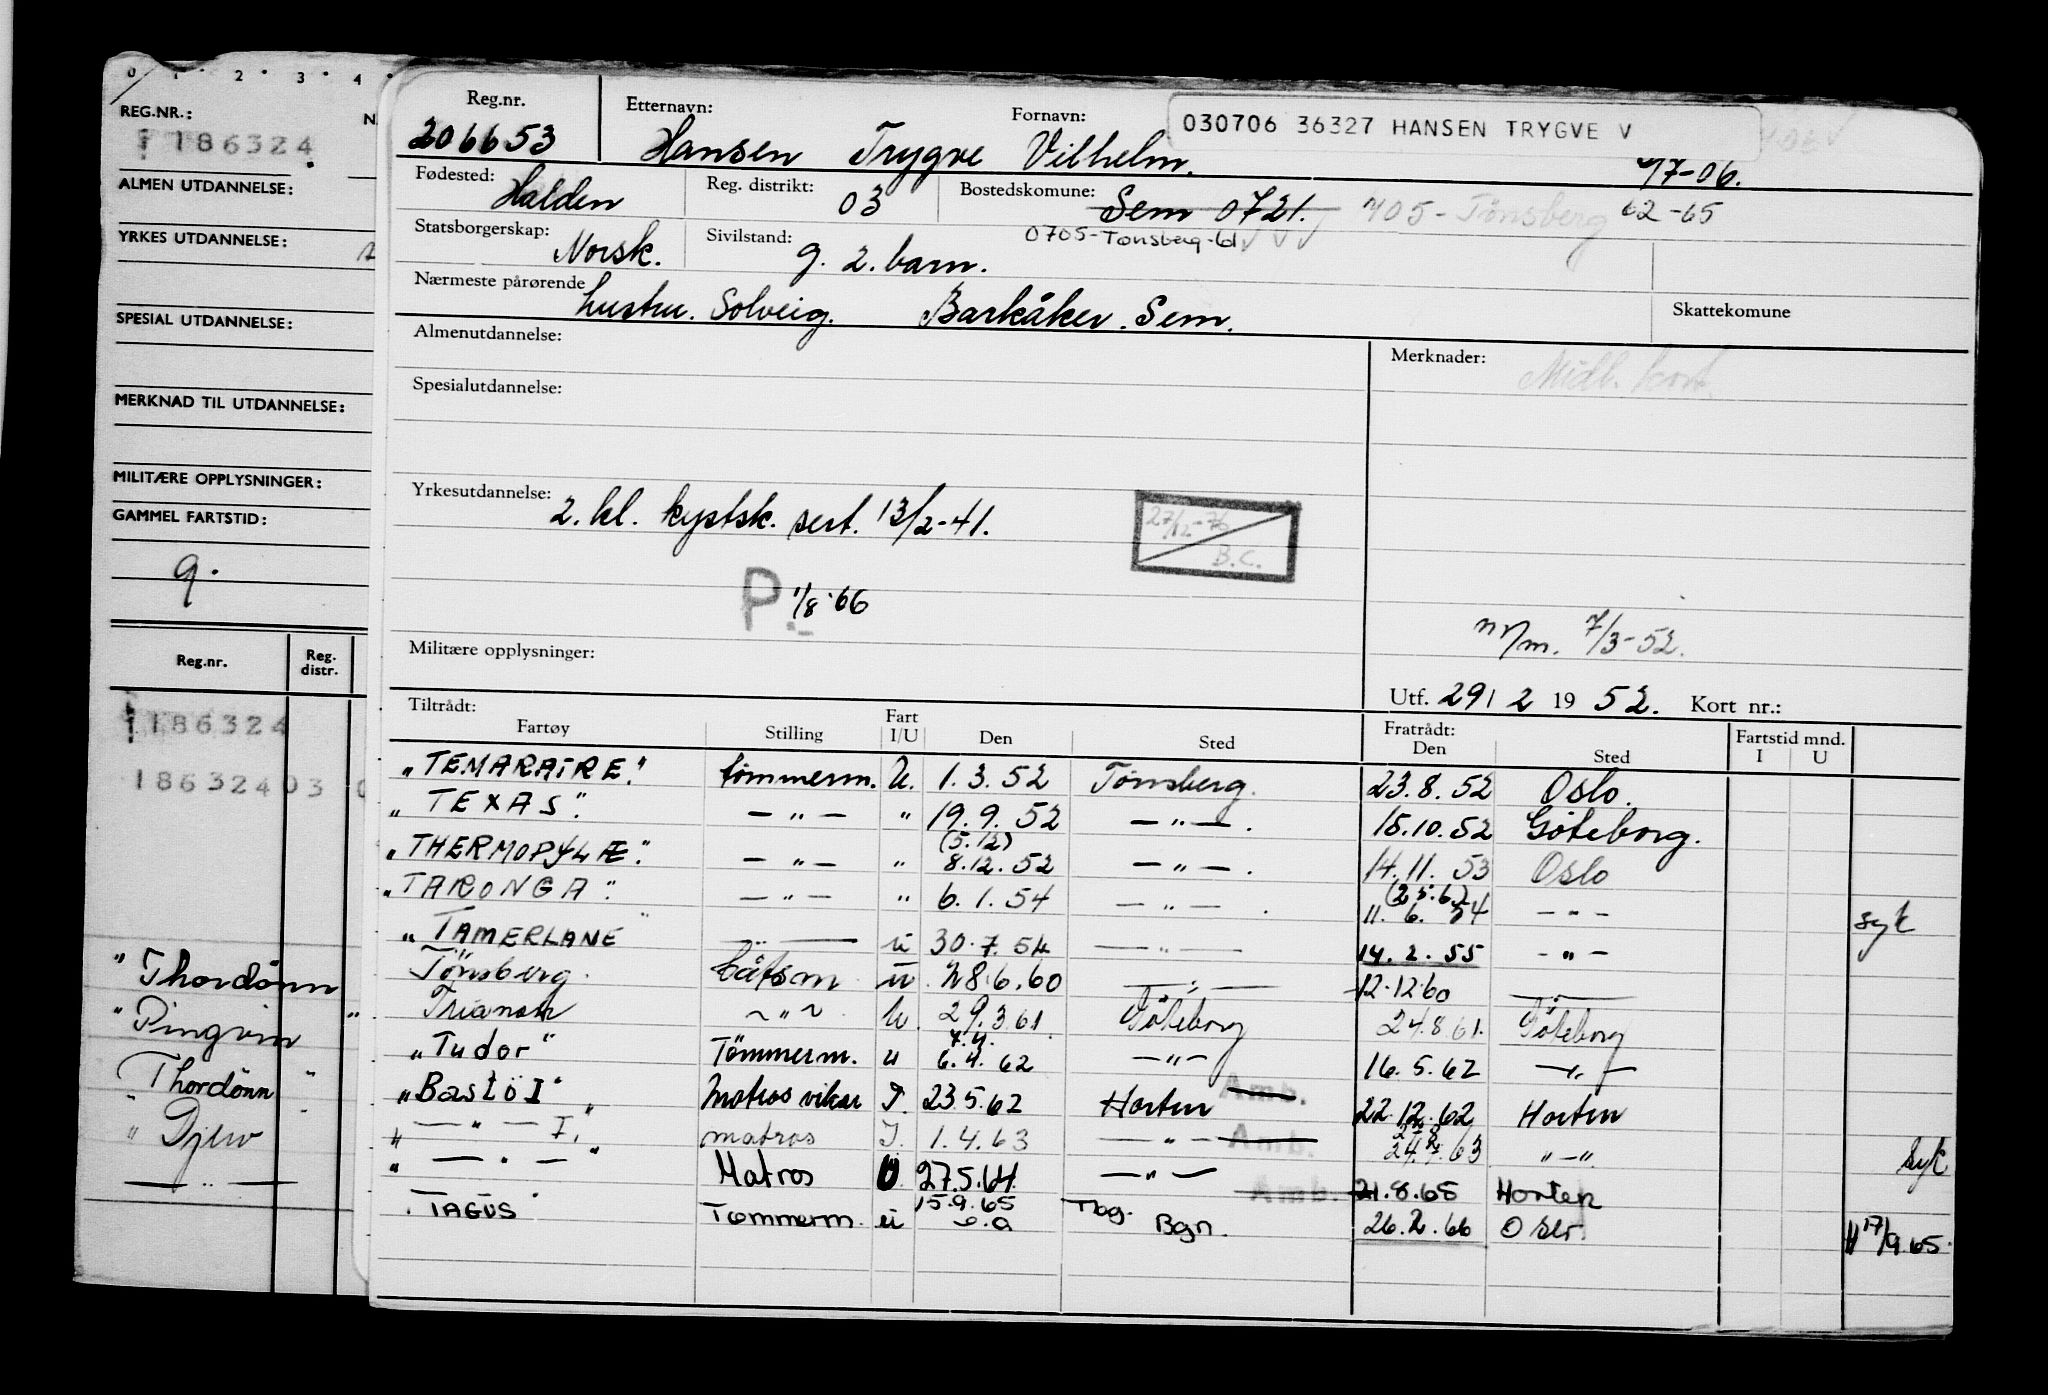 0 1 · 2 · 3 · 4
REG.NR.:
186324
ALMEN UTDANNELSE:
YRKES UTDANNELSE:
SPESIAL UTDANNELSE:
MERKNAD TIL UTDANNELSE:
MILITÆRE OPPLYSNINGER:
GAMMEL FARTSTID:
g.
Reg.nr. Reg. distr.
186324
18632403
" Thordönn
" Pingvin "
Thordönn "
" Djerv
— " —
Reg.nr. Etternavn: Fornavn: 030706 36327 HANSEN TRYGVE V
206653 Hansen Trygve Vilhelm. 7-06.
Fødested: Halden Reg. distrikt: 03 Bostedskomune: Sem 0721. 705-Tønsberg 62-65
Statsborgerskap: Norsk. Sivilstand: g. 2. barn. 0705-Tønsberg-61
Nærmeste pårørende hustru. Solveig. Barkåker. Sem. Skattekomune
Almenutdannelse: Merknader: Midl. kort.
Spesialutdannelse:
Yrkesutdannelse: 2. kl. kystsk. sert. 13/2-41. 27/12-76 B.C.
P. 1/8-66
m/m. 7/3-52.
Militære opplysninger:
Utf. 29/2 1952. Kort nr.:
Tiltrådt: Fratrådt: Fartstid mnd.
Fartøy Stilling Fart I/U Den Sted Den Sted I U
"TEMARAIRE." tømmerm. U. 1.3.52 Tønsberg. 23.8.52 Oslo.
"TEXAS". — " — " 19.9.52 — " — . 15.10.52 Göteborg.
"THERMOPYLÆ". — " — " (5.12) 8.12.52 — " — . 14.11.53 Oslo
"TARONGA". — " — " 6.1.54 — " — . (25.6) 11.6.54 — " — syk
"TAMERLANE" — " — u 30.7.54 — " — 14.2.55 — " —
Tönsberg. båtsm u. 28.6.60 — " — 12.12.60 — " —
Trianon ~ " ~ U. 29.3.61 Göteborg 24.8.61. Göteborg
"Tudor" Tömmerm. u 7.4. 6.4.62 — " — 16.5.62 — " —
"Bastö I" Matros vikar I. 23.5.62 Horten Amb. 22.12.62 Horten
" — " — I." matros I. 1.4.63 — " — Amb. 24.7.63 " — " syk
" — " — " Matros U 27.5.64 — " — Amb. 21.8.65 Horten
"TAGUS" Tømmerm. u 15.9.65 Tbg. Bgn. 26.2.66 Oslo. 17/9.65.